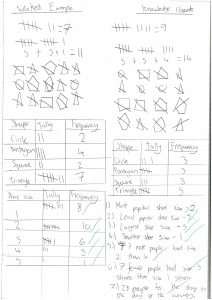 Worked Example
Knowledge Check
|| = 7
|||| = 9
5 + 5 + 1 = 11
5 + 5 + 4 = 14
Shape Tally Frequency
Circle || 2
Pentagon |||| 4
Square || 2
Triangle 7
Shape Tally Frequency
Circle ||| 3
Pentagon ||| 3
Square ||| 3
Triangle
Shoe size Tally Frequency
1 8
2 10
3 6
4 ||| 3
5 | 1
1) Most popular shoe size - 2
2) Least popular shoe size -
3) Largest shoe size -
4) Smallest shoe size - 1
5) 7 more people had size
2 than
6) 7 fewer people had size 5
shoes than size 1 shoes
7) 28 people in the shop on
the day of the survey